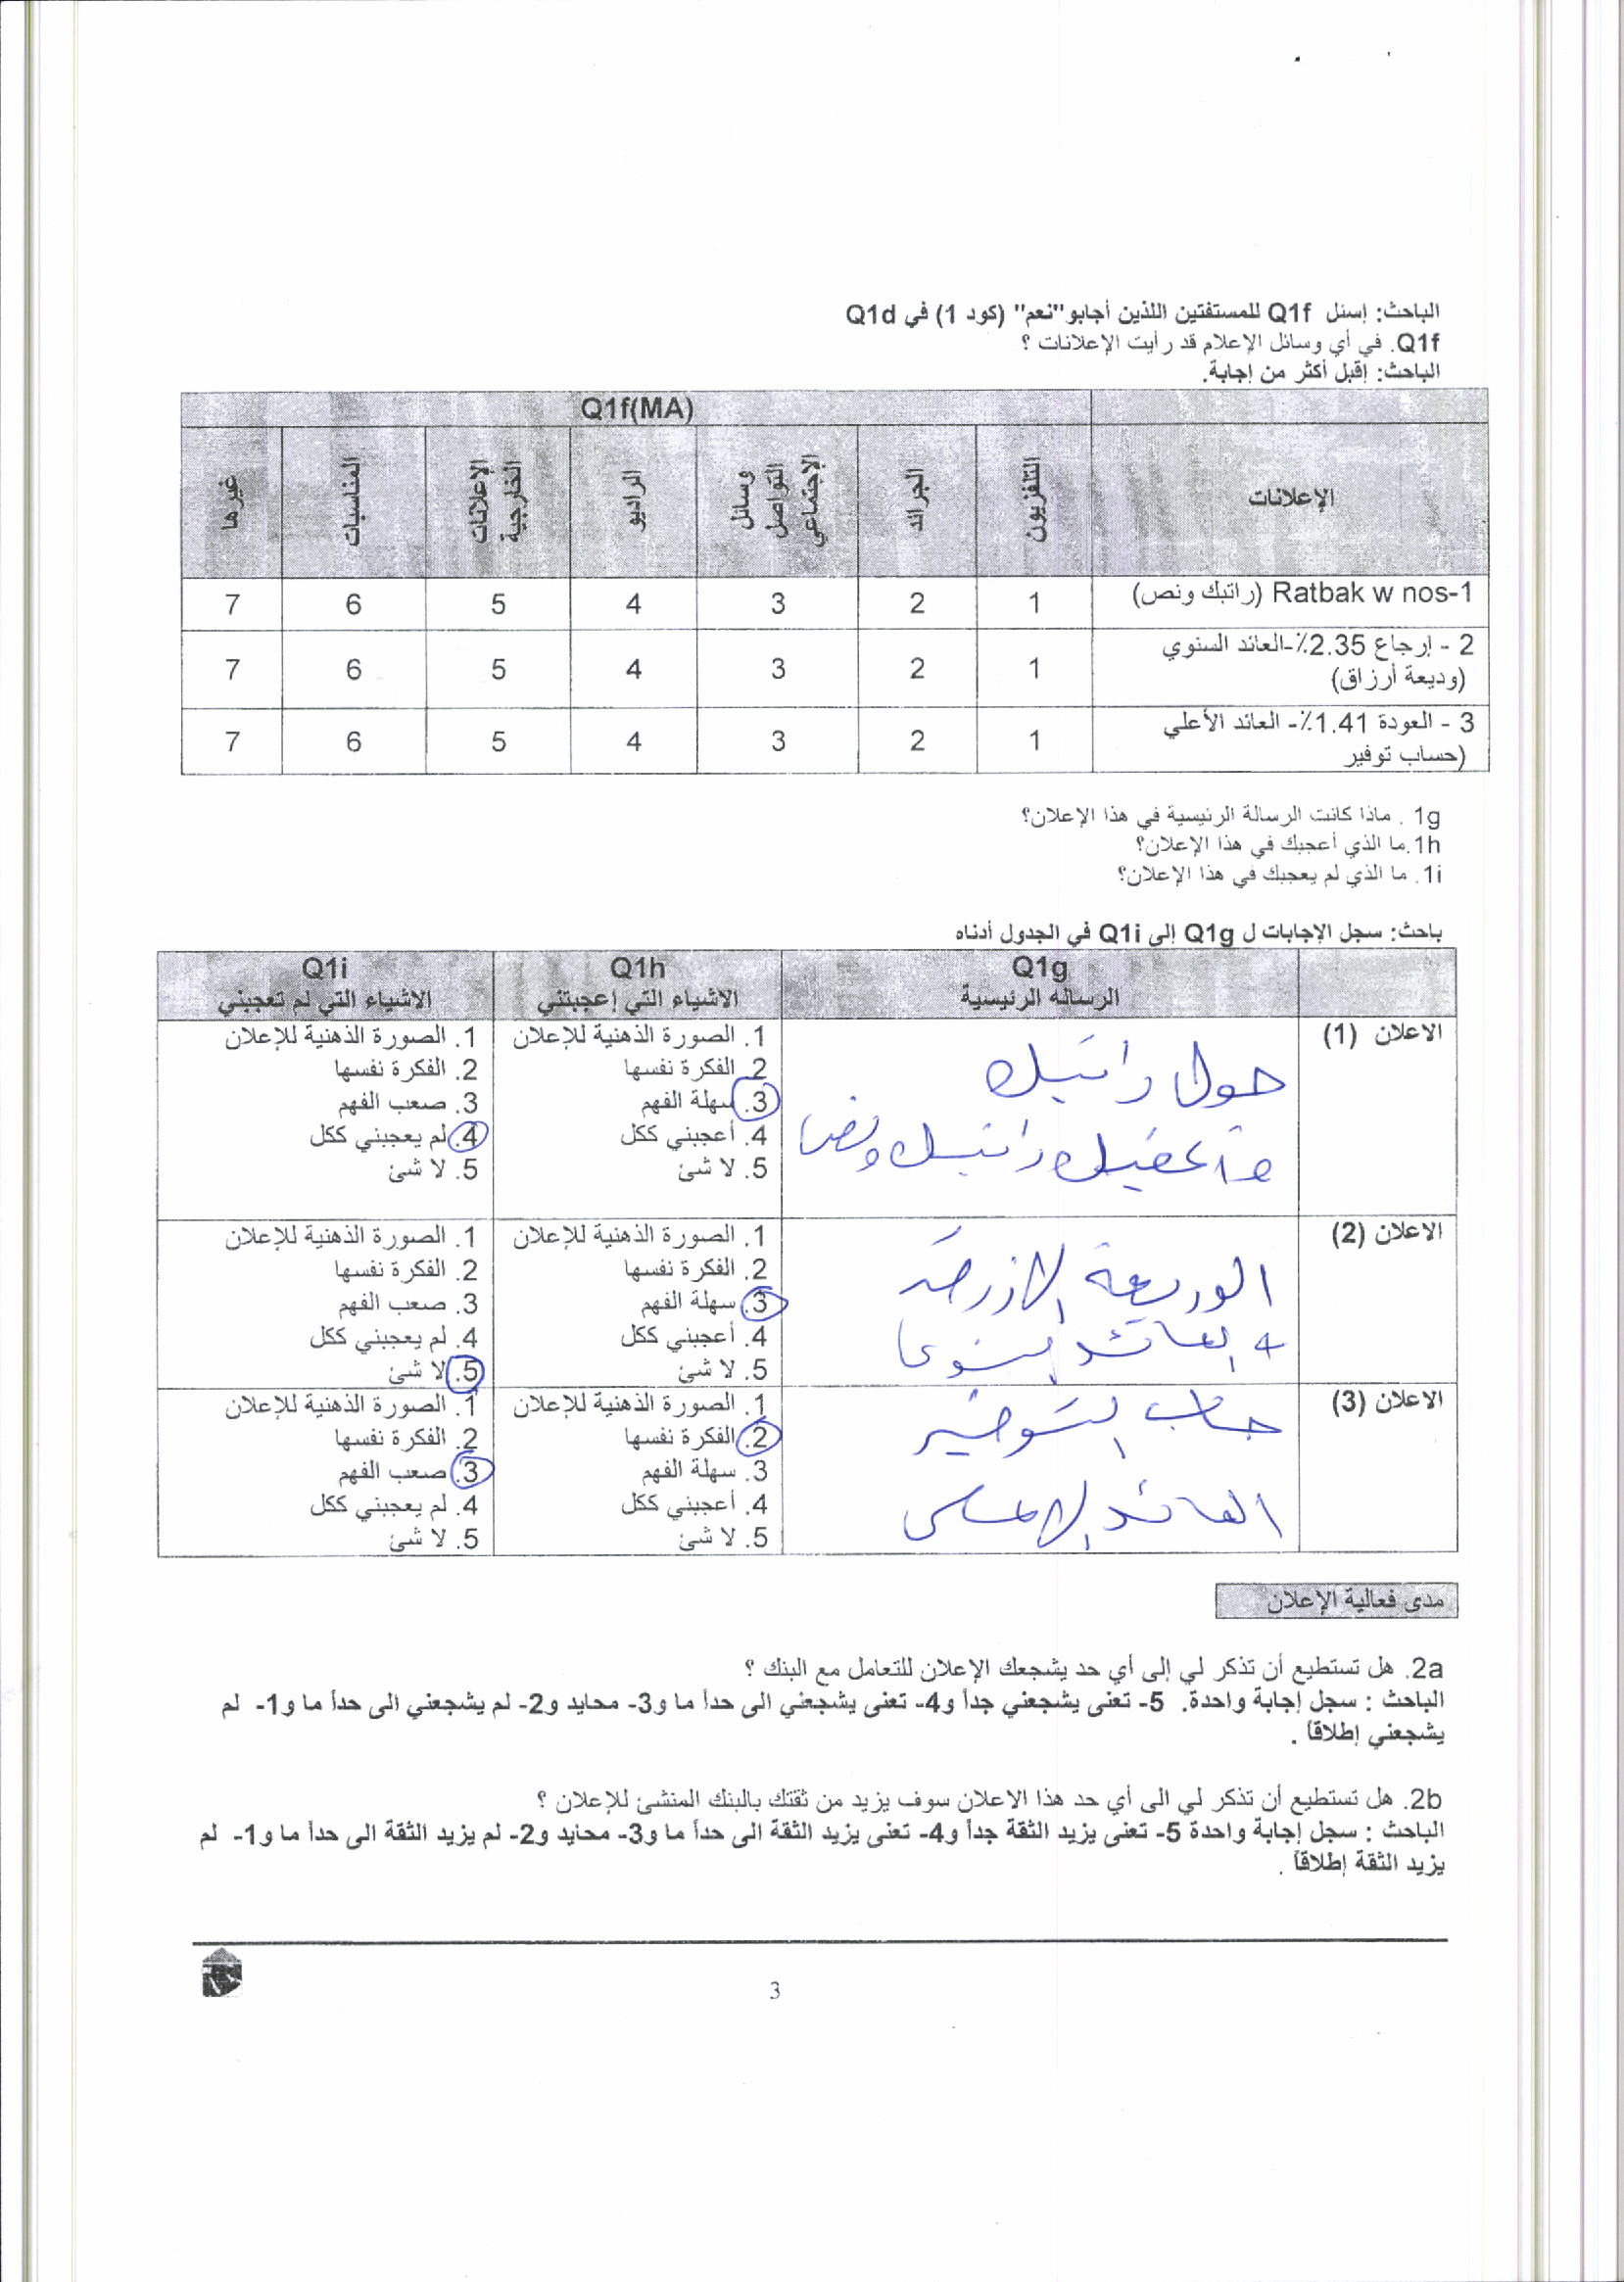 الباحث: إسئل Q1f للمستفتين اللذين أجابو"نعم" (كود 1) في Q1d
Q1f. في أي وسائل الإعلام قد رأيت الإعلانات ؟
الباحث: إقبل أكثر من إجابة.
Q1f(MA)
الإعلانات التلفزيون الجرائد وسائل التواصل الإجتماعي الراديو الإعلانات الخارجية المناسبات غيرها
1-Ratbak w nos (راتبك ونص) 1 2 3 4 5 6 7
2 - إرجاع 2.35٪-العائد السنوي
(وديعة أرزاق) 1 2 3 4 5 6 7
3 - العودة 1.41٪- العائد الأعلي
(حساب توفير 1 2 3 4 5 6 7
1g . ماذا كانت الرسالة الرئيسية في هذا الإعلان؟
1h.ما الذي أعجبك في هذا الإعلان؟
1i. ما الذي لم يعجبك في هذا الإعلان؟
باحث: سجل الإجابات ل Q1g إلى Q1i في الجدول أدناه
Q1g Q1h Q1i
الرساله الرئيسية الاشياء التي إعجبتني الاشياء التي لم تعجبني
الاعلان (1)
حول راتبك
راتبك ونص
1. الصورة الذهنية للإعلان
2. الفكرة نفسها
3. سهلة الفهم
4. أعجبني ككل
5. لا شئ
1. الصورة الذهنية للإعلان
2. الفكرة نفسها
3. صعب الفهم
4. لم يعجبني ككل
5. لا شئ
الاعلان (2)
الوديعة
العائد
1. الصورة الذهنية للإعلان
2. الفكرة نفسها
3. سهلة الفهم
4. أعجبني ككل
5. لا شئ
1. الصورة الذهنية للإعلان
2. الفكرة نفسها
3. صعب الفهم
4. لم يعجبني ككل
5. لا شئ
الاعلان (3)
حساب التوفير
العائد الاعلى
1. الصورة الذهنية للإعلان
2. الفكرة نفسها
3. سهلة الفهم
4. أعجبني ككل
5. لا شئ
1. الصورة الذهنية للإعلان
2. الفكرة نفسها
3. صعب الفهم
4. لم يعجبني ككل
5. لا شئ
مدى فعالية الإعلان
2a. هل تستطيع أن تذكر لي إلى أي حد يشجعك الإعلان للتعامل مع البنك ؟
الباحث : سجل إجابة واحدة. 5- تعنى يشجعني جداً و4- تعنى يشجعني الى حداً ما و3- محايد و2- لم يشجعني الى حداً ما و1- لم
يشجعني إطلاقاً .
2b. هل تستطيع أن تذكر لي الى أي حد هذا الاعلان سوف يزيد من ثقتك بالبنك المنشئ للإعلان ؟
الباحث : سجل إجابة واحدة 5- تعنى يزيد الثقة جداً و4- تعنى يزيد الثقة الى حداً ما و3- محايد و2- لم يزيد الثقة الى حداً ما و1- لم
يزيد الثقة إطلاقاً .
3